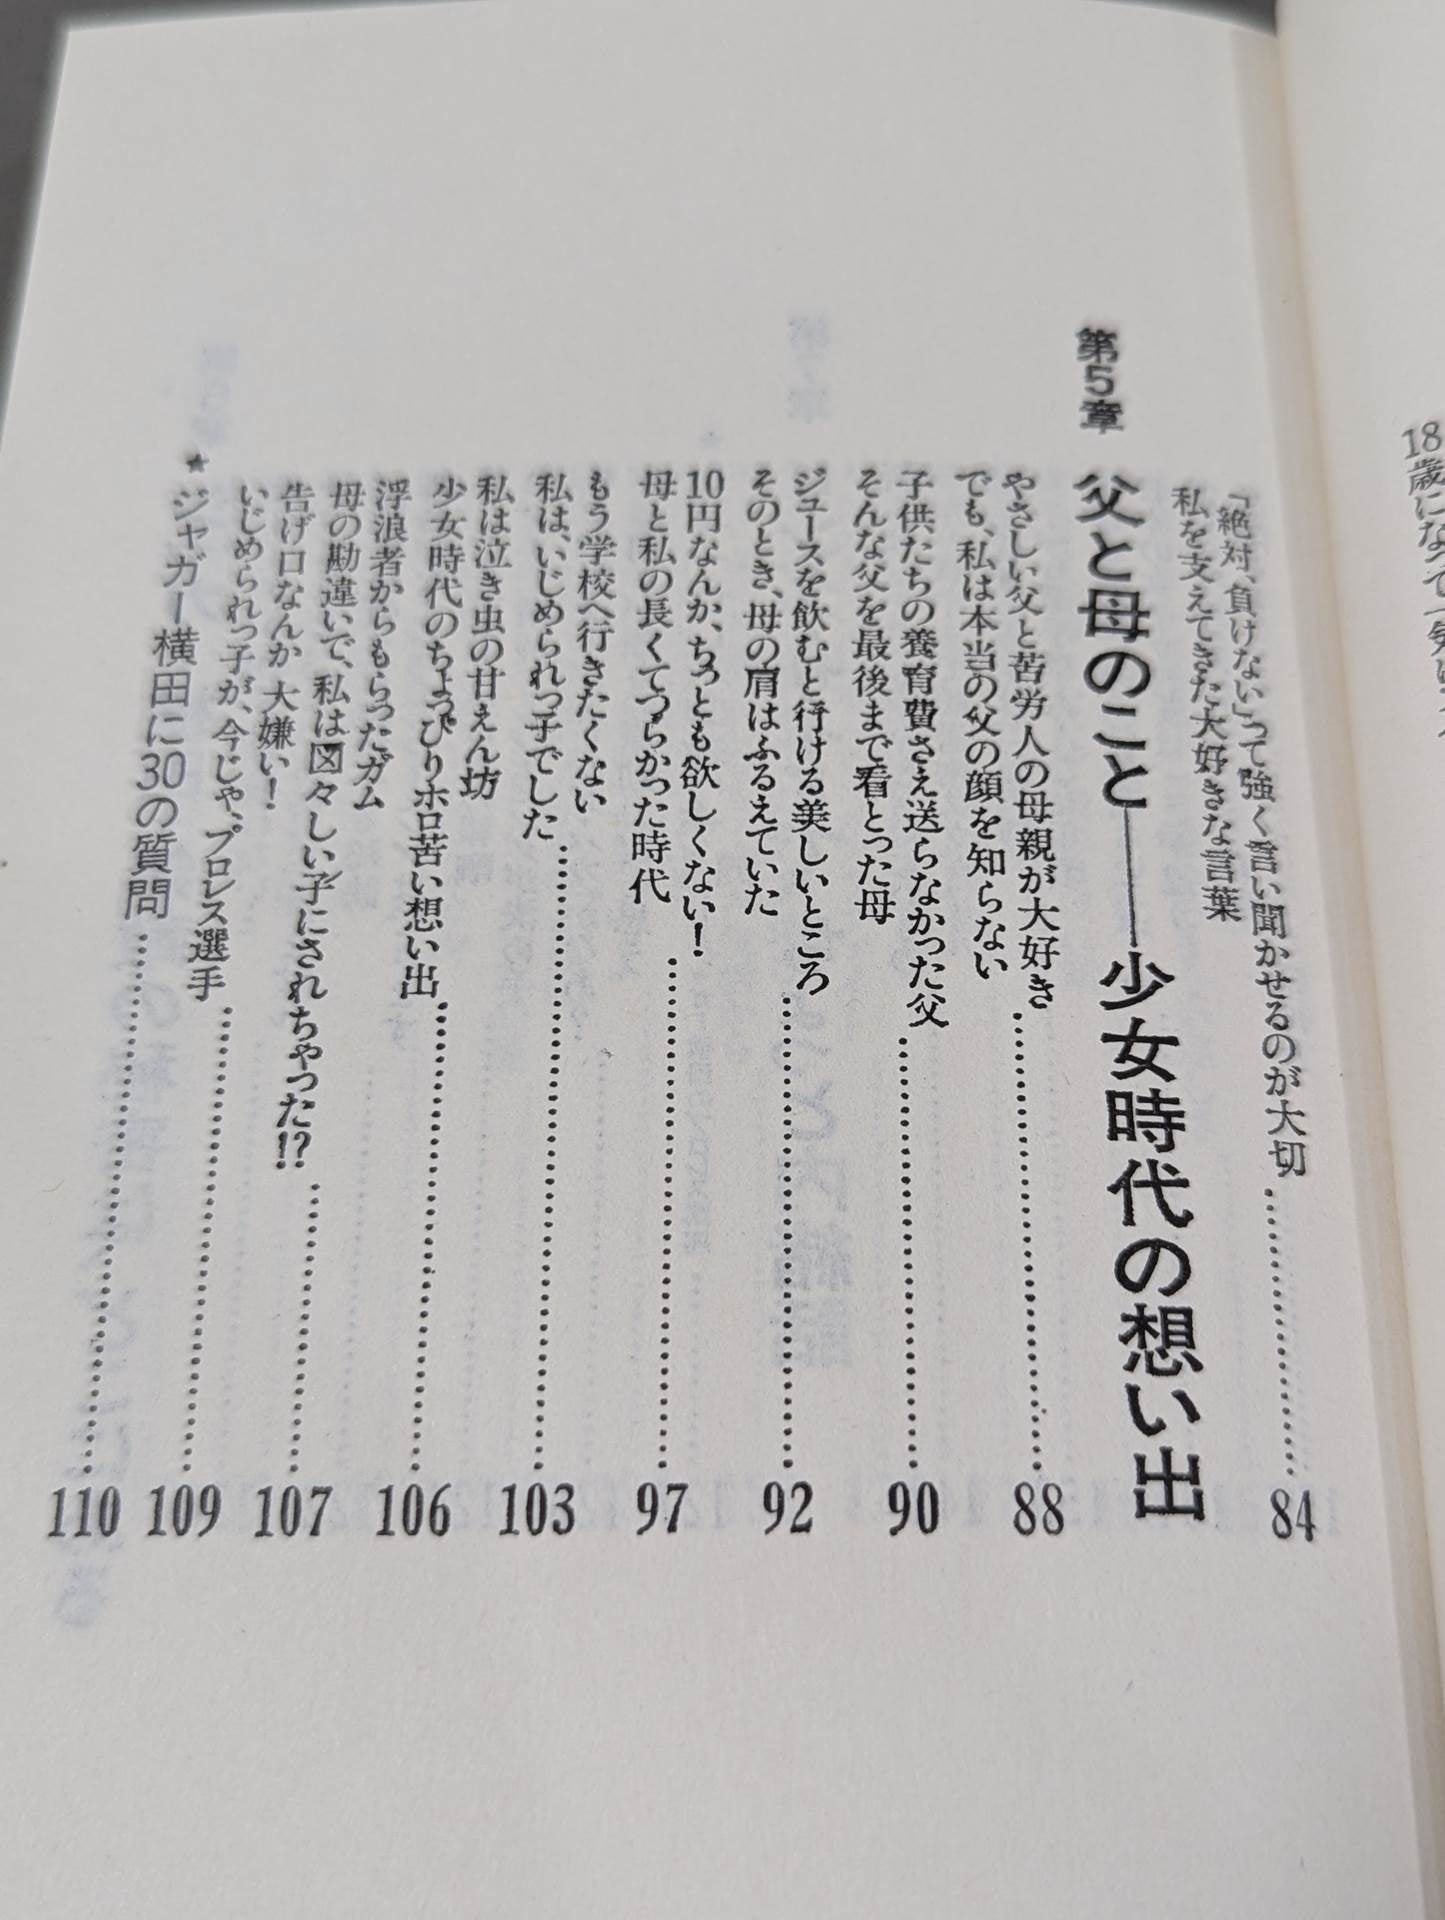 18歳になって一気に
「絶対、負けない」って強く言い聞かせるのが大切
私を支えてきた大好きな言葉……84
第5章 父と母のこと――少女時代の想い出
やさしい父と苦労人の母親が大好き
でも、私は本当の父の顔を知らない……88
子供たちの養育費さえ送らなかった父
そんな父を最後まで看とった母……90
ジュースを飲むと行ける美しいところ
そのとき、母の肩はふるえていた……92
10円なんか、ちっとも欲しくない!
母と私の長くてつらかった時代……97
もう学校へ行きたくない
私は、いじめられっ子でした……103
私は泣き虫の甘えん坊
少女時代のちょっぴりホロ苦い想い出……106
浮浪者からもらったガム
母の勘違いで、私は図々しい子にされちゃった!?……107
告げ口なんか大嫌い!
いじめられっ子が、今じゃ、プロレス選手……109
★ジャガー横田に30の質問……110